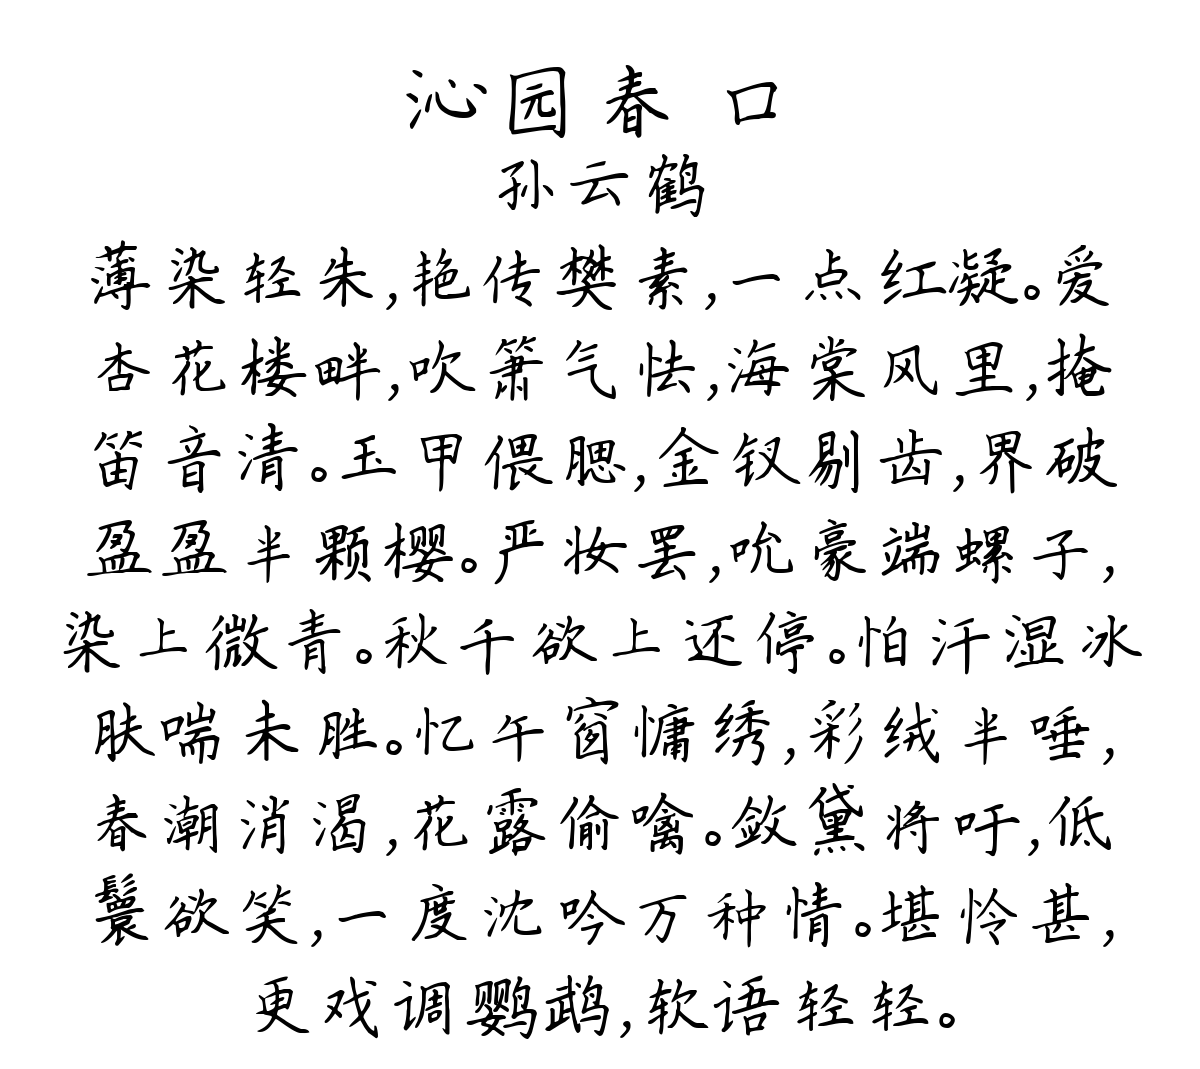 沁园春 口
孙云鹤
薄染轻朱,艳传樊素,一点红凝。爱
杏花楼畔,吹箫气怯,海棠风里,掩
笛音清。玉甲偎腮,金钗剔齿,界破
盈盈半颗樱。严妆罢,吮豪端螺子,
染上微青。秋千欲上还停。怕汗湿冰
肤喘未胜。忆午窗慵绣,彩绒半唾,
春潮消渴,花露偷噙。敛黛将吁,低
鬟欲笑,一度沈吟万种情。堪怜甚,
更戏调鹦鹉,软语轻轻。